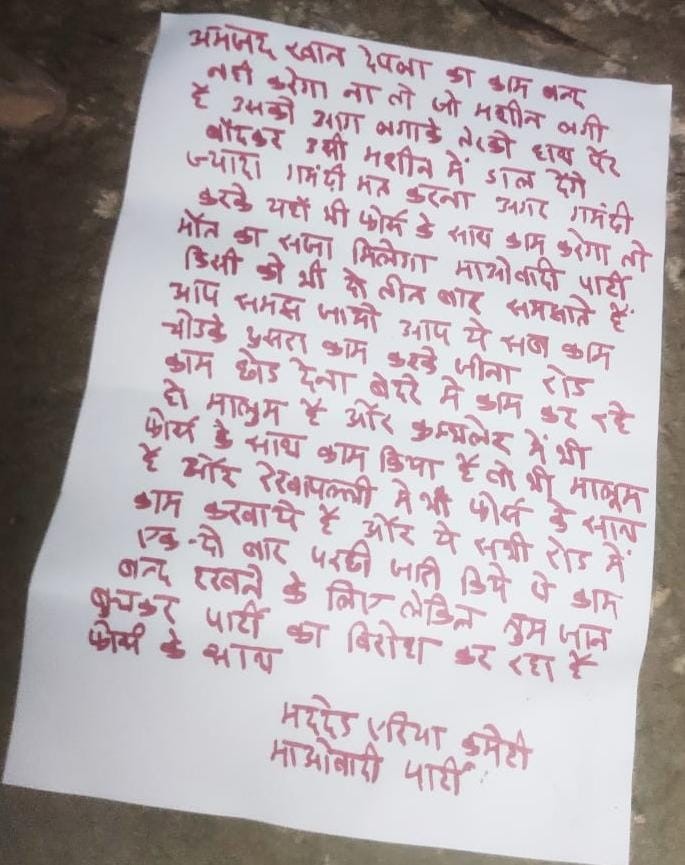 अमजद खान देपला का काम बन्द
नही करेगा ना तो जो मशीन लगी
है उसको आग लगाके तेरको हाथ पैर
बाँदकर उसी मशीन में डाल देंगे
ज्यादा गमंदी मत करना अगर गमंदी
करके यहाँ भी फोर्स के साथ काम करेगा तो
मौत का सजा मिलेगा माओवादी पार्टी
किसी को भी दो तीन बार समझाते हैं
आप समझ जाओ आप ये सब काम
चोडके दुसरा काम करके जीना रोड
काम छोड देना बेदरे मे काम कर रहे
हो मालुम है और कम्पलेट में भी
फोर्स के साथ काम किया है तो भी मालूम
है और रेखापल्ली मे भी फोर्स के साथ
काम करवाये है और ये सभी रोड में
एक-दो बार परची जारी किये थे काम
बन्द रखने के लिए लेकिन तुम जान
बुचकर पार्टी का विरोध कर रहा है
फोर्स के साथ
मददेड एरिया कमेटी
माओवादी पार्टी